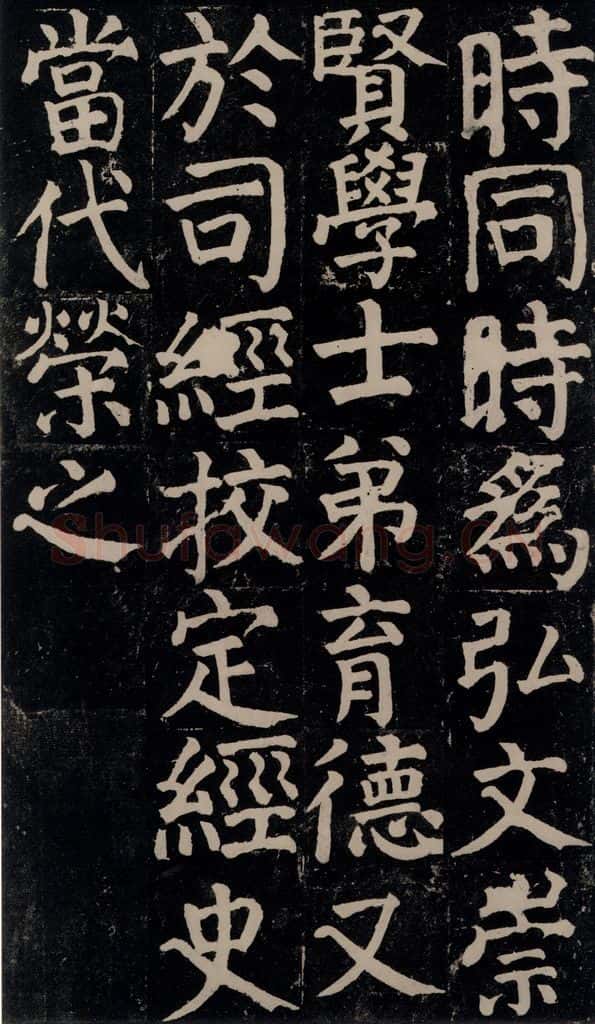 時同時為弘文崇
賢學士弟育德又
於司經挍定經史
當代榮之
Shufawang.CN